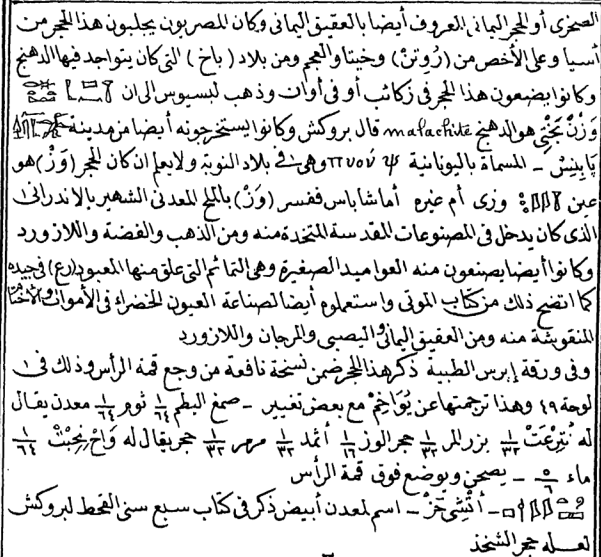 الصخرى أو الحجر اليمانى المعروف أيضا بالعقيق اليمانى وكان المصريون يجلبون هذا الحجر من
آسيا وعلى الأخص من (رُوتِنْ) وخيتا والعجم ومن بلاد (باخ) التى كان يتواجد فيها الدهنج
وكانوا يضعون هذا الحجر فى زكائب أو فى أوان وذهب لبسيوس الى ان
وَزْنْ هو الدهنج malachite قال بروكش وكانوا يستخرجونه أيضا من مدينة
ـ المسماة باليونانية وهى فى بلاد النوبة ولا يعلم ان كان الحجر (وَزْ) هو
عين وزى أم غيره أما شاباس ففسر (وَزْ) بالملح المعدنى الشهير بالاندرانى
الذى كان يدخل فى المصنوعات المقدسة المتخذة منه ومن الذهب والفضة واللازورد
وكانوا أيضا يصنعون منه العواميد الصغيرة وهى التمائم التى علق منها المعبود (رع) فى جيده
كما اتضح ذلك من كتاب الموتى واستعملوه أيضا لصناعة العيون الخضراء فى الأموات
المنقوشة منه ومن العقيق اليمانى واليصبى والمرجان واللازورد
وفى ورقة إبرس الطبية ذكر هذا الحجر ضمن نسخة نافعة من وجع قمة الرأس وذلك فى
لوحة ٤٩ وهذا ترجمتها عن يُوَاخِمْ مع بعض تغيير ـ صمغ البطم ١/٦٤ ثوم ١/٦٤ معدن يقال
له ١/٣٢ بزر المر ١/٣٢ حجر الوز ١/١٦ أثمد ١/٣٢ مرمر ١/٣٢ حجر يقال له ١/٦٤
ماء ٥/٦ ـ يصحن ويوضع فوق قمة الرأس
ـ أَنْشِى خَزْ ـ اسم لمعدن أبيض ذكر فى كتاب سبع سنى القحط لبروكش
لعله حجر الشنخذ